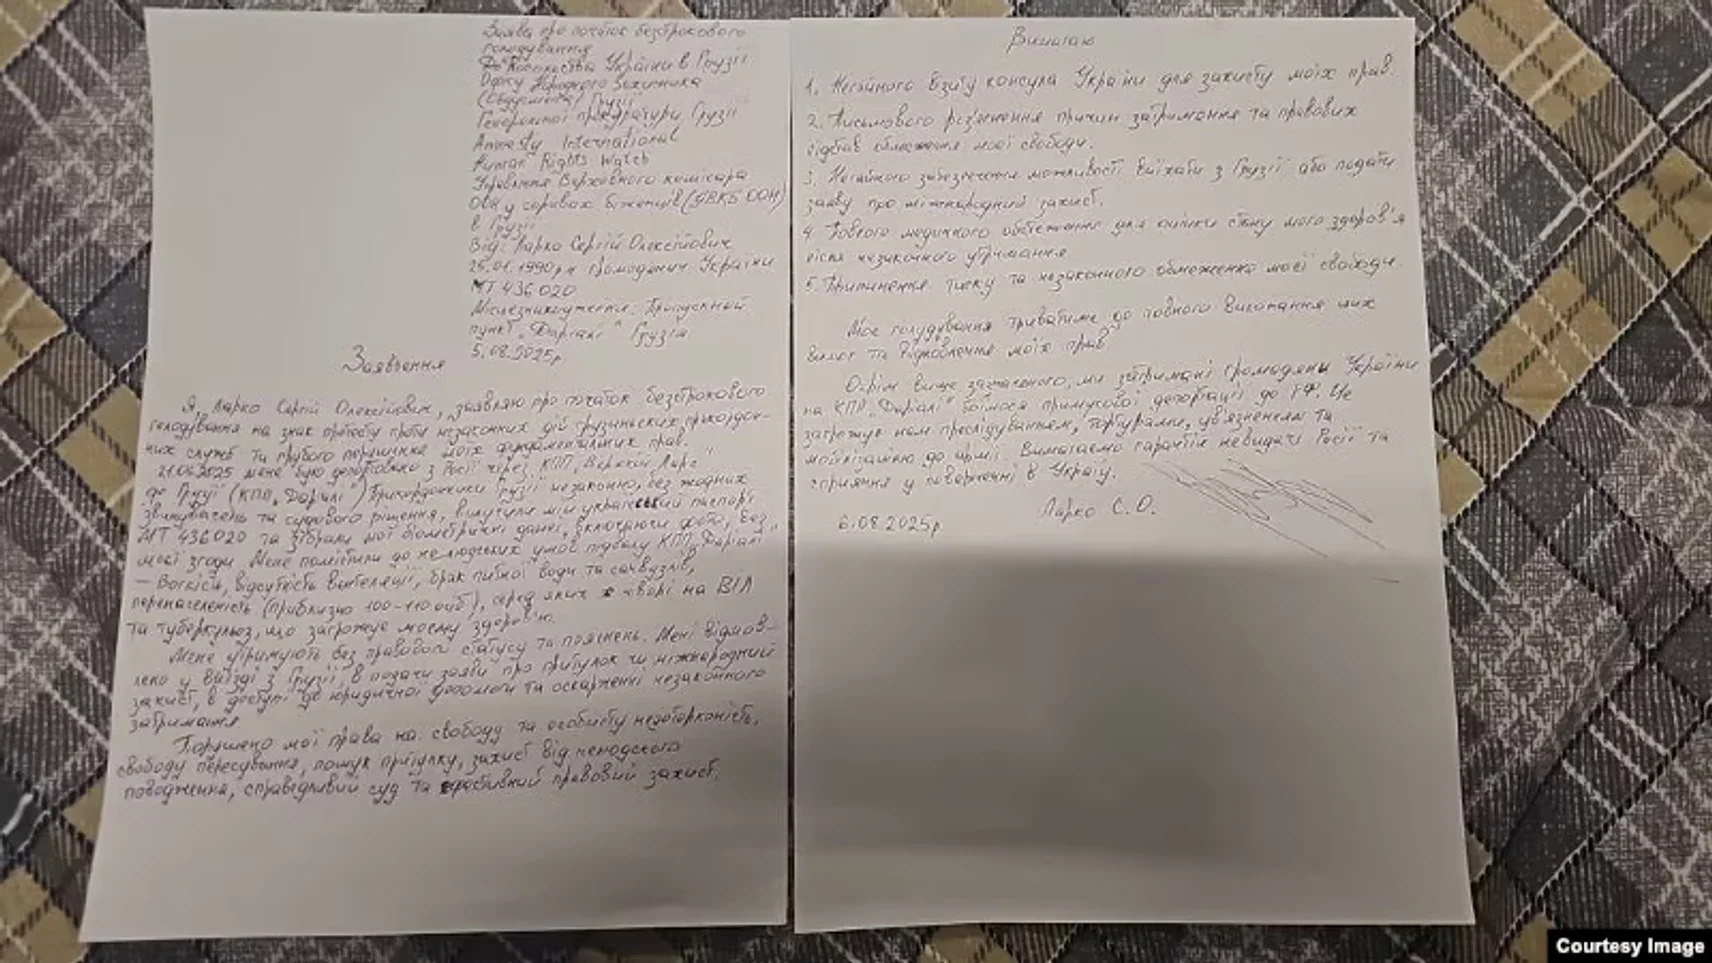 Заява про початок безстрокового
голодування
До Посольства України в Грузії
Офісу Народного Захисника
(Омбудсмена) Грузії
Генеральної прокуратури Грузії
Amnesty International
Human Rights Watch
Управління Верховного комісара
ООН у справах біженців (УВКБ ООН)
в Грузії
Від: Ларко Сергій Олексійович
25.01.1990рн громадянин України
МТ 436020
Місцезнаходження: Пропускний
пункт „Даріалі" Грузія
5.08.2025р
Заявлення
Я, Ларко Сергій Олексійович, заявляю про початок безстрокового
голодування на знак протесту проти незаконних дій грузинських прикордон-
них служб та грубого порушення моїх фундаментальних прав.
21.06.2025 мене було депортовано з Росії через КПП „Верхній Ларс"
до Грузії (КПП „Даріалі") Прикордонники Грузії незаконно, без жодних
звинувачень та судового рішення, вилучили мій український паспорт
МТ 436020 та зібрали мої біометричні данні, включаючи фото, без
моєї згоди. Мене помістили до нелюдських умов підвалу КПП „Даріалі"
– Вогкість, відсутність вентеляції, брак питної води та санвузлів,
перенаселеність (приблизно 100-110 осіб), серед яких є хворі на ВІЛ
та туберкульоз, що загрожує моєму здоров'ю.
Мене утримують без правового статусу та пояснень. Мені відмов-
лено у виїзді з Грузії, в подачі заяви про притулок чи міжнародний
захист, в доступі до юридичної допомоги та оскарженні незаконного
затримання
Порушено мої права на свободу та особисту недоторканість,
свободу пересування, пошук притулку, захист від нелюдського
поводження, справедливий суд та ефективний правовий захист.
Вимагаю
1. Негайного візиту консула України для захисту моїх прав.
2. Письмового роз'яснення причин затримання та правових
підстав обмеження моєї свободи.
3. Негайного забезпечення можливості виїхати з Грузії або подати
заяву про міжнародний захист.
4. Повного медичного обстеження для оцінки стану мого здоров'я
після незаконного утримання
5. Припинення тиску та незаконного обмеження моєї свободи.
Моє голодування триватиме до повного виконання цих
вимог та відновлення моїх прав
Окрім вище зазначеного, ми затримані громадяни України
на КПП „Даріалі" боїмося примусової депортації до РФ. Це
загрожує нам переслідуванням, тортурами, ув'язненням та
мобілізацією до армії. Вимагаємо гарантій невидачі Росії та
сприяння у поверненні в Україну.
Ларко С.О.
6.08.2025р
Courtesy Image